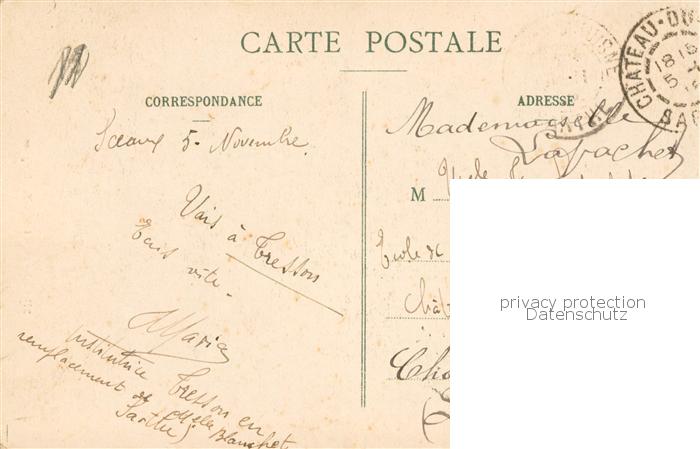 CARTE POSTALE
CORRESPONDANCE
Sceaux 5 Novembre
Vais à Tresson
vite
Maria
Institutrice Tresson en
remplacement de Melle Blanchet
Sarthe
ADRESSE
Mademoiselle
Lapachet
M
Ecole de
Chât
CHATEAU-DU
18
5
SAR
privacy protection
Datenschutz